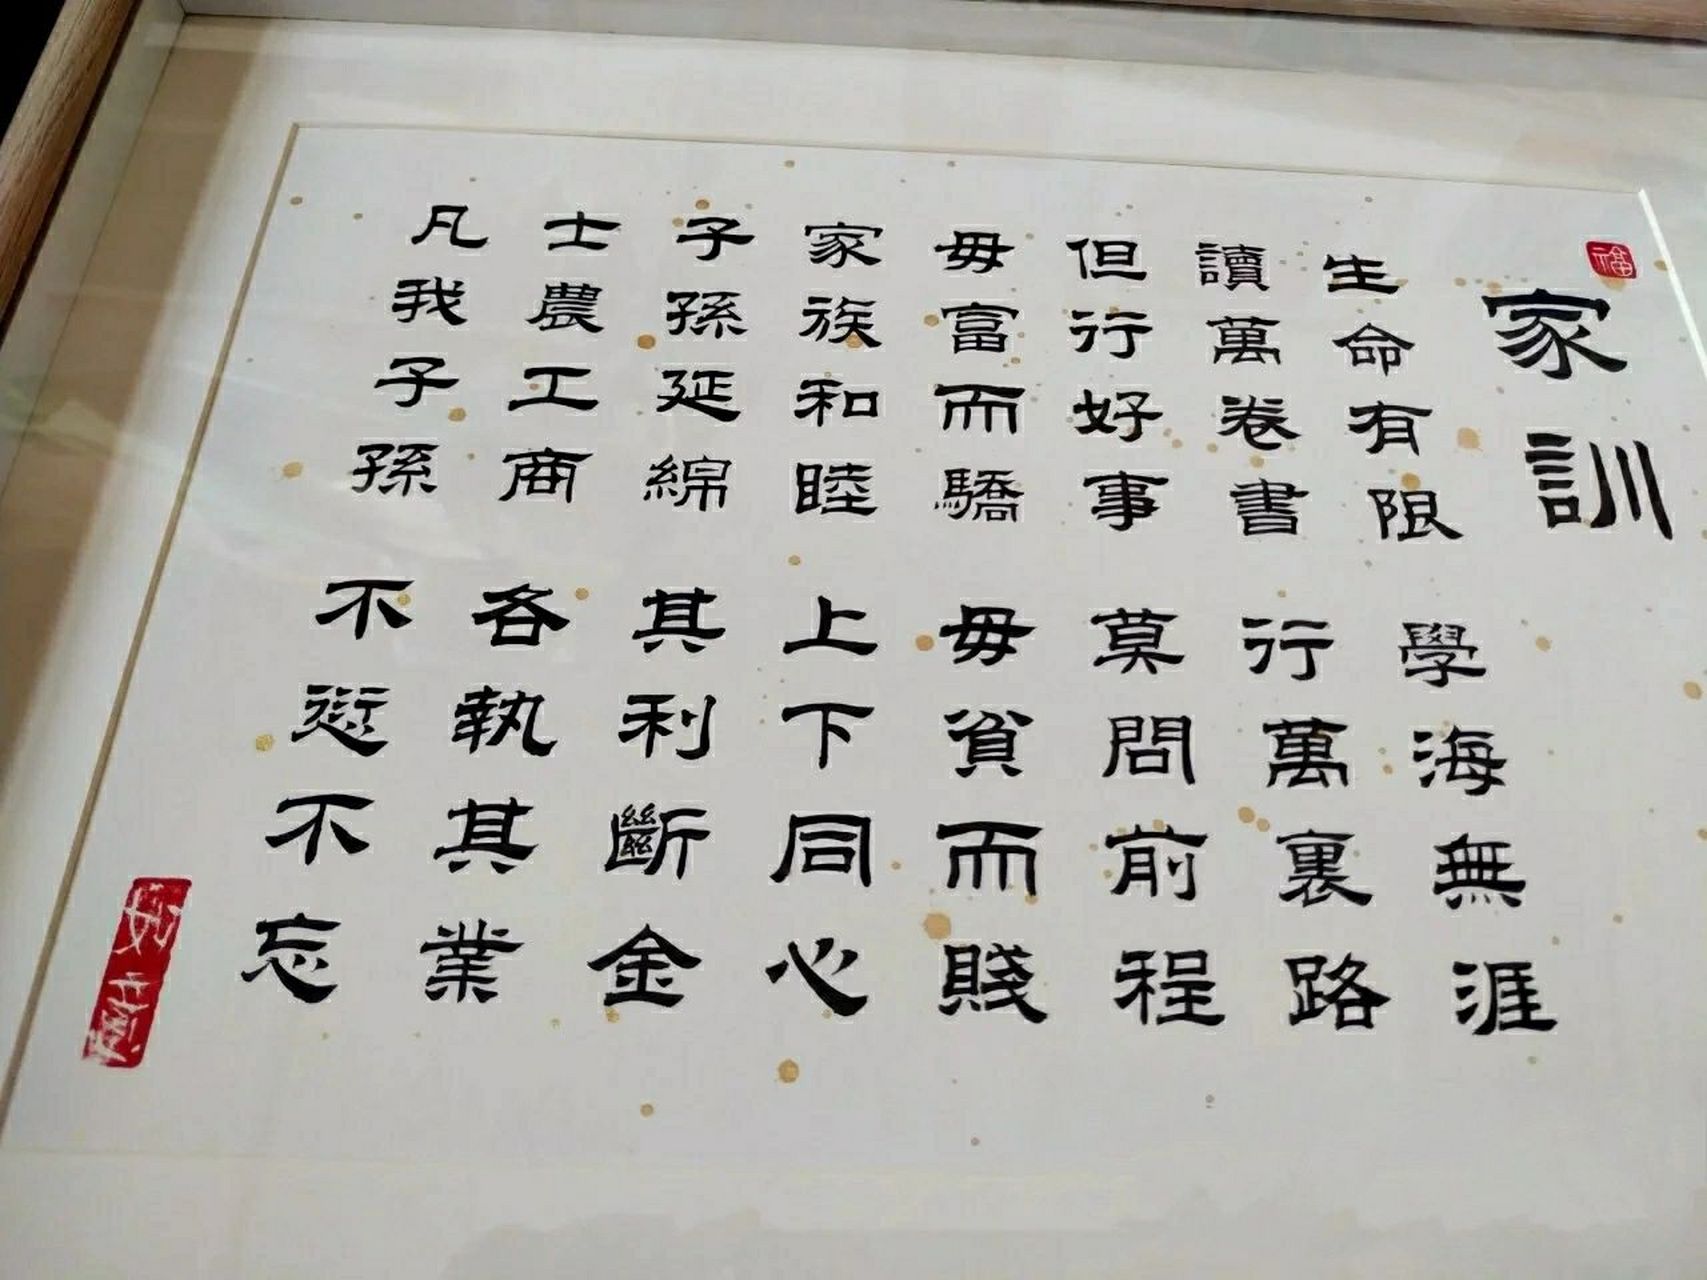 福
家訓
生命有限 學海無涯
讀萬卷書 行萬裏路
但行好事 莫問前程
毋富而驕 毋貧而賤
家族和睦 上下同心
子孫延綿 其利斷金
士農工商 各執其業
凡我子孫 不愆不忘